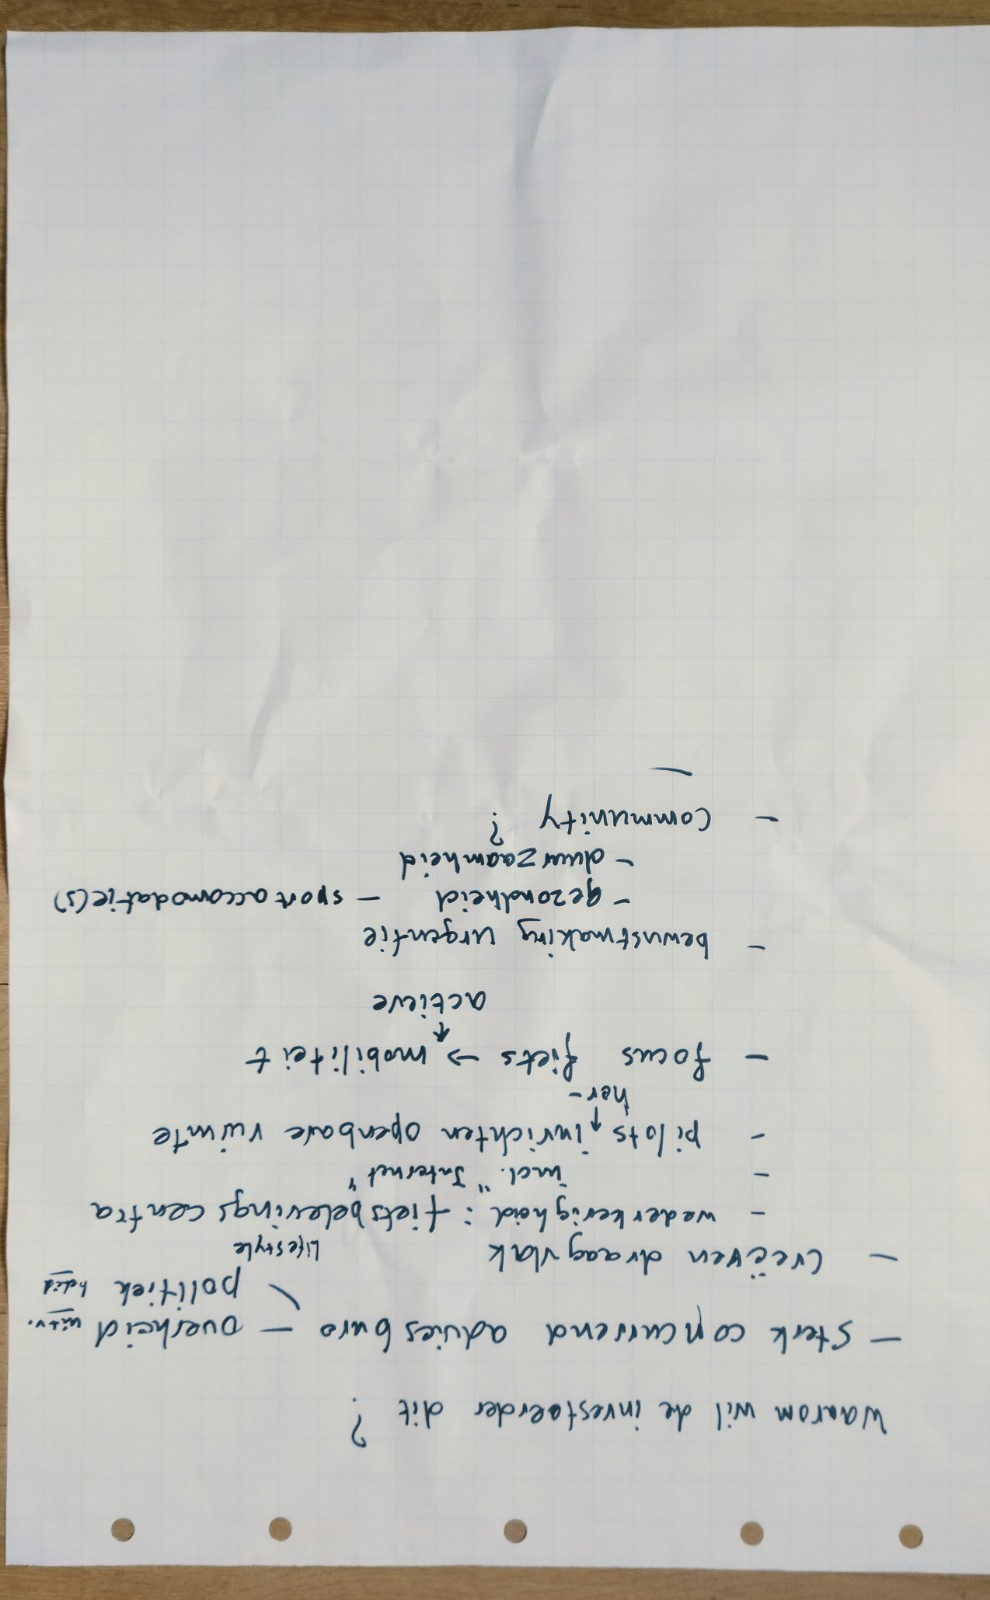 Waarom wil de investeerder dit ?
- Sterk concurrerend adviesburo - overheid uitv.
politiek
- Creëren draagvlak
- wederkerigheid : fietsbelevingscentra Lifestyle
- incl. "Internet"
- pilots inrichten openbare ruimte
her-
- focus fiets → mobiliteit
actieve
- bewustmaking urgentie
- gezondheid - sportaccomodatie(s)
- duurzaamheid
- Community ?
-